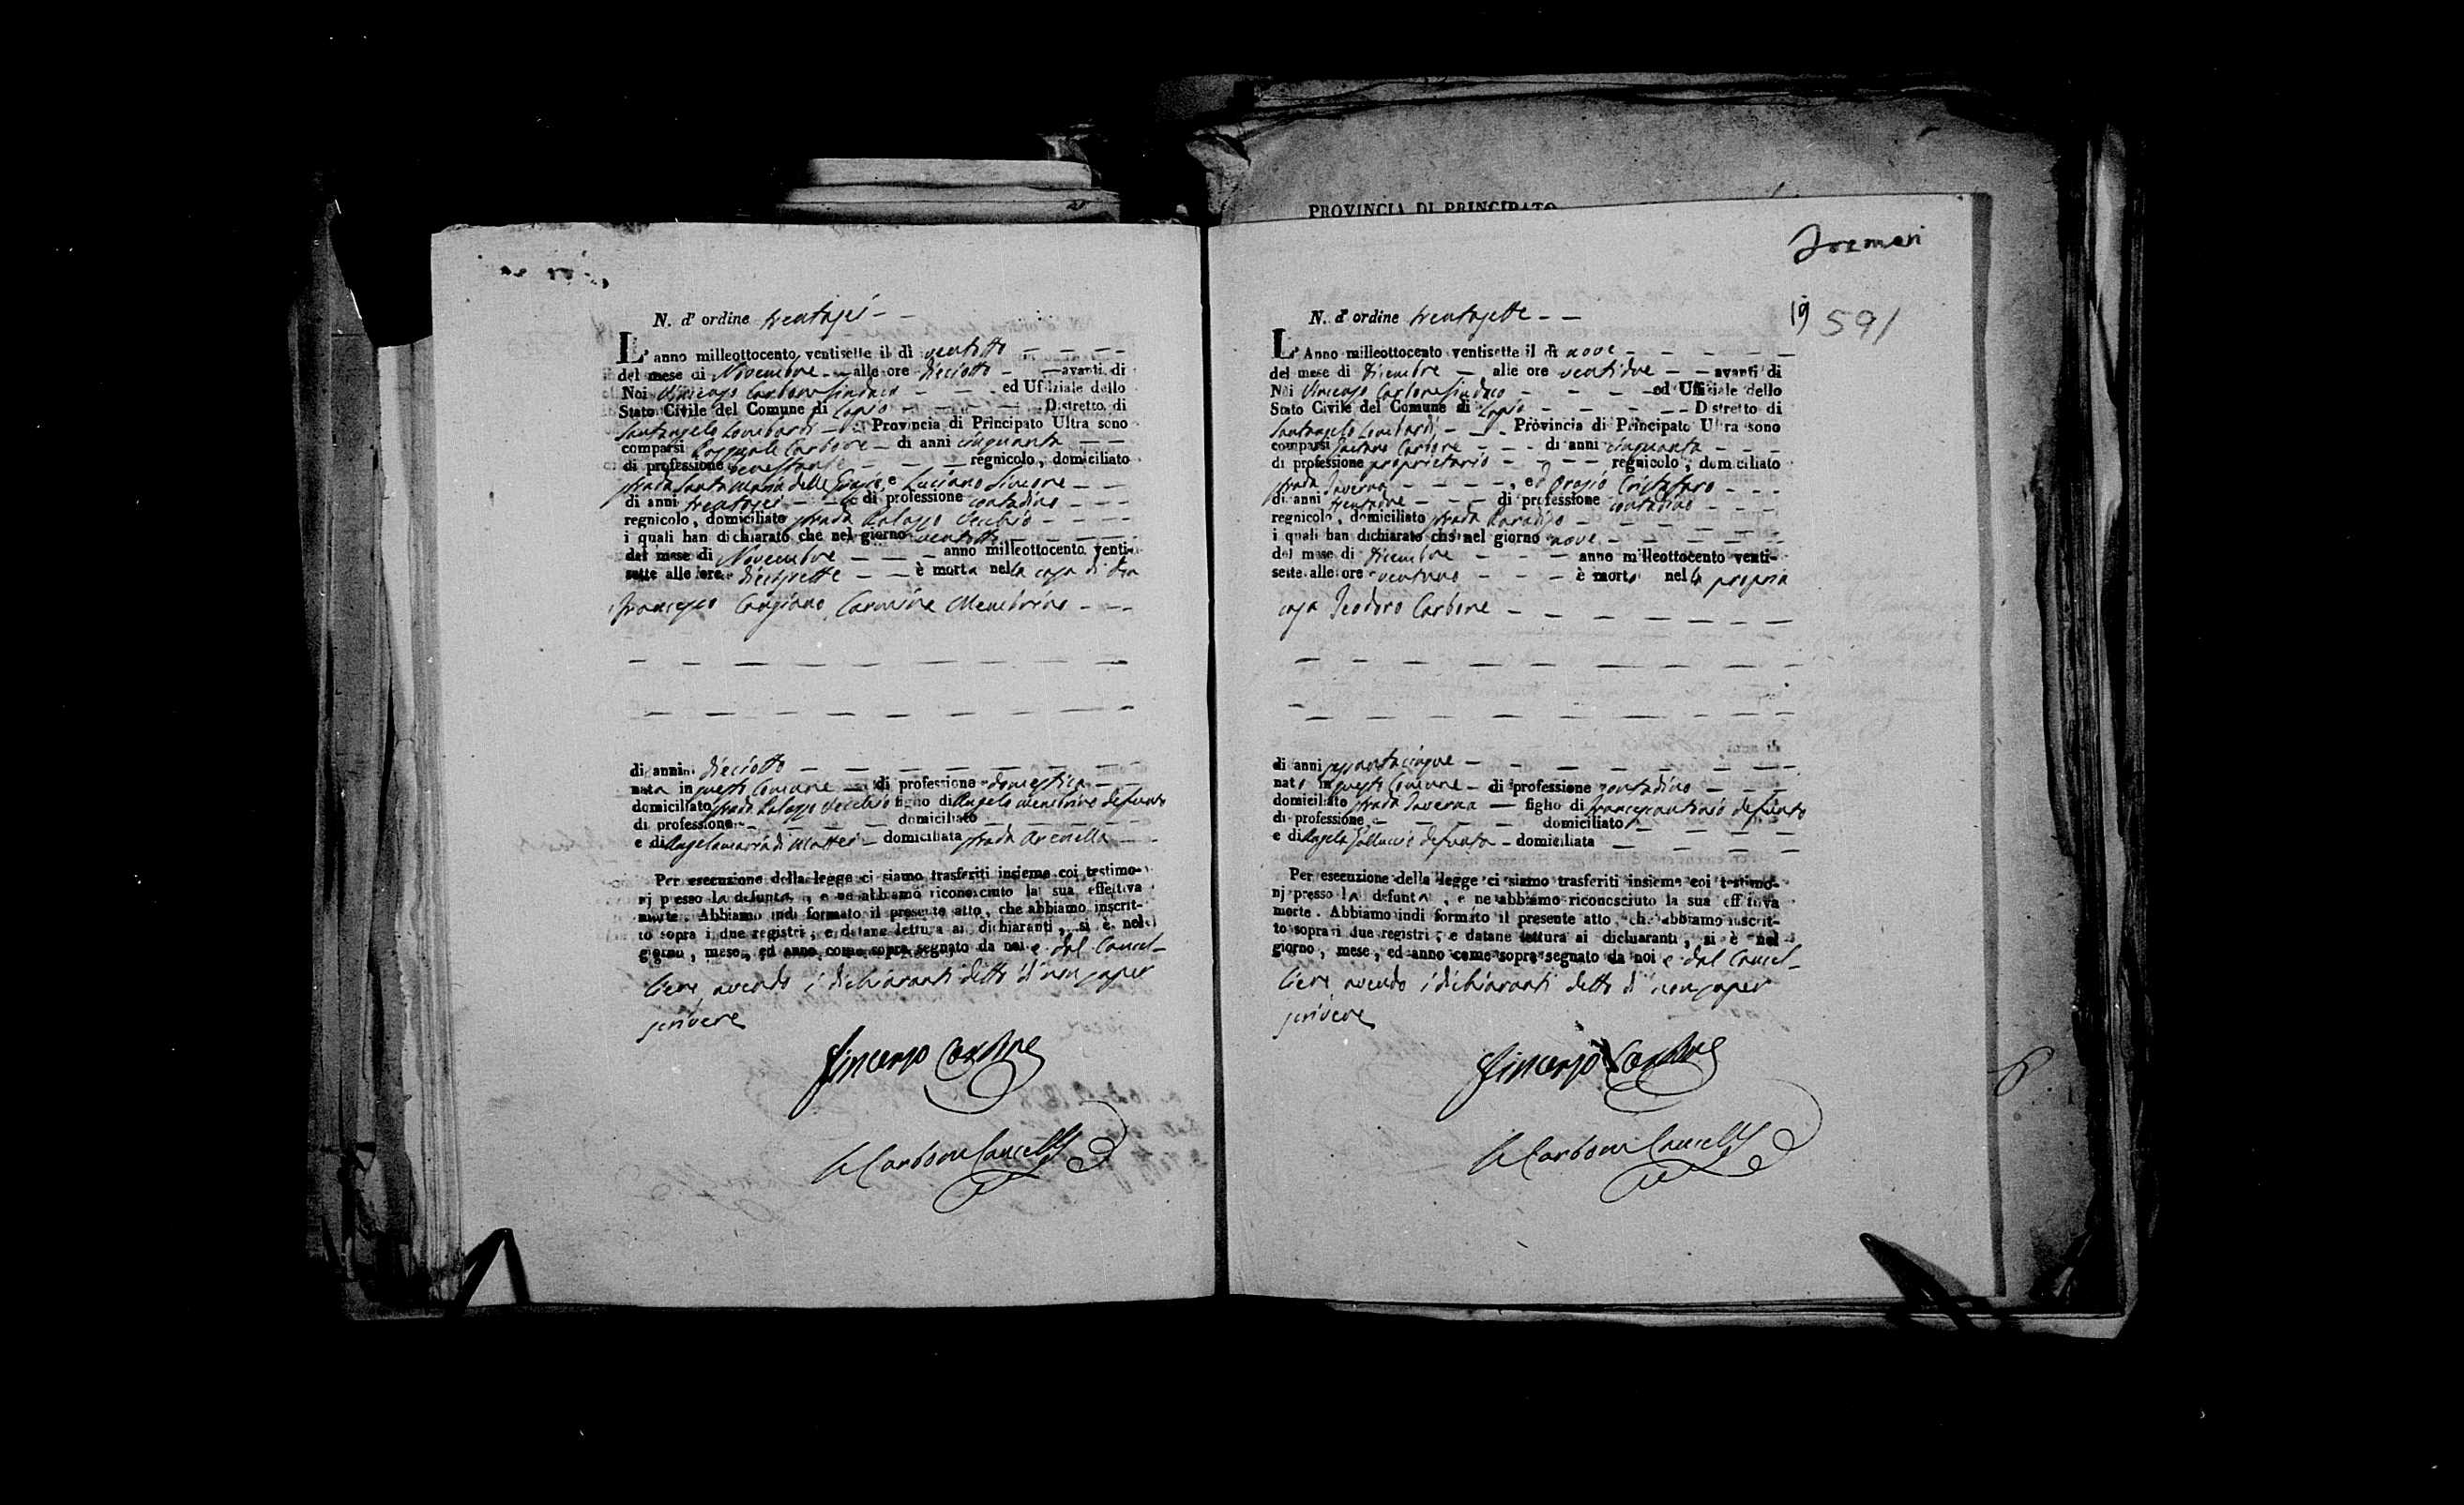 PROVINCIA DI PRINCIPATO
N. d' ordine trentasei
L' anno milleottocento ventisette il dì ventotto
del mese di Novembre alle ore dieciotto avanti di
Noi Vincenzo Carbone Sindaco ed Uffiziale dello
Stato Civile del Comune di Lapio Distretto di
Santangelo Lombardi Provincia di Principato Ultra sono
comparsi Pasquale Carbone di anni cinquanta
di professione benestante regnicolo, domiciliato
strada Santa Maria delle Grazie, e Luciano Simeone
di anni trentasei di professione contadino
regnicolo, domiciliato strada Palazzo Vecchio
i quali han dichiarato che nel giorno ventotto
del mese di Novembre anno milleottocento venti-
sette alle ore diecisette è morta nella casa di Don
Francesco Cangiano Carmina Membrino
di anni dieciotto
nata in questo Comune di professione domestica
domiciliato strada Palazzo Vecchio figlio di Angelo Membrino defunto
di professione domiciliato
e di Angelamaria di Mattei domiciliata strada Arenella
Per esecuzione della legge ci siamo trasferiti insieme coi testimo-
nj presso la defunta, e ne abbiamo riconosciuto la sua effettiva
morte. Abbiamo indi formato il presente atto, che abbiamo inscrit-
to sopra i due registri, e datane lettura ai dichiaranti, si è nel
giorno, mese, ed anno come sopra segnato da noi e dal Cancel-
liere avendo i dichiaranti detto di non saper
scrivere
Vincenzo Carbone
Carbone Cancell
19 591
N. d' ordine trentasette
L' Anno milleottocento ventisette il dì nove
del mese di Dicembre alle ore ventidue avanti di
Noi Vincenzo Carbone Sindaco ed Uffiziale dello
Stato Civile del Comune di Lapio Distretto di
Santangelo Lombardi Provincia di Principato Ultra sono
comparsi Gaetano Carbone di anni cinquanta
di professione proprietario regnicolo, domiciliato
strada Taverna, ed Orazio Cristofaro
di anni trentadue di professione contadino
regnicolo, domiciliato strada Paradiso
i quali han dichiarato che nel giorno nove
del mese di Dicembre anno milleottocento venti-
sette alle ore ventuno è morto nella propria
casa Teodoro Carbone
di anni sessantacinque
nato in questo Comune di professione contadino
domiciliato strada Taverna figlio di Francescantonio defunto
di professione domiciliato
e di Angela Galluccio defunta domiciliata
Per esecuzione della legge ci siamo trasferiti insieme coi testimo-
nj presso la defunta, e ne abbiamo riconosciuto la sua effettiva
morte. Abbiamo indi formato il presente atto, che abbiamo inscrit-
to sopra i due registri, e datane lettura ai dichiaranti, si è nel
giorno, mese, ed anno come sopra segnato da noi e dal Cancel-
liere avendo i dichiaranti detto di non saper
scrivere
Vincenzo Carbone
Carbone Cancell